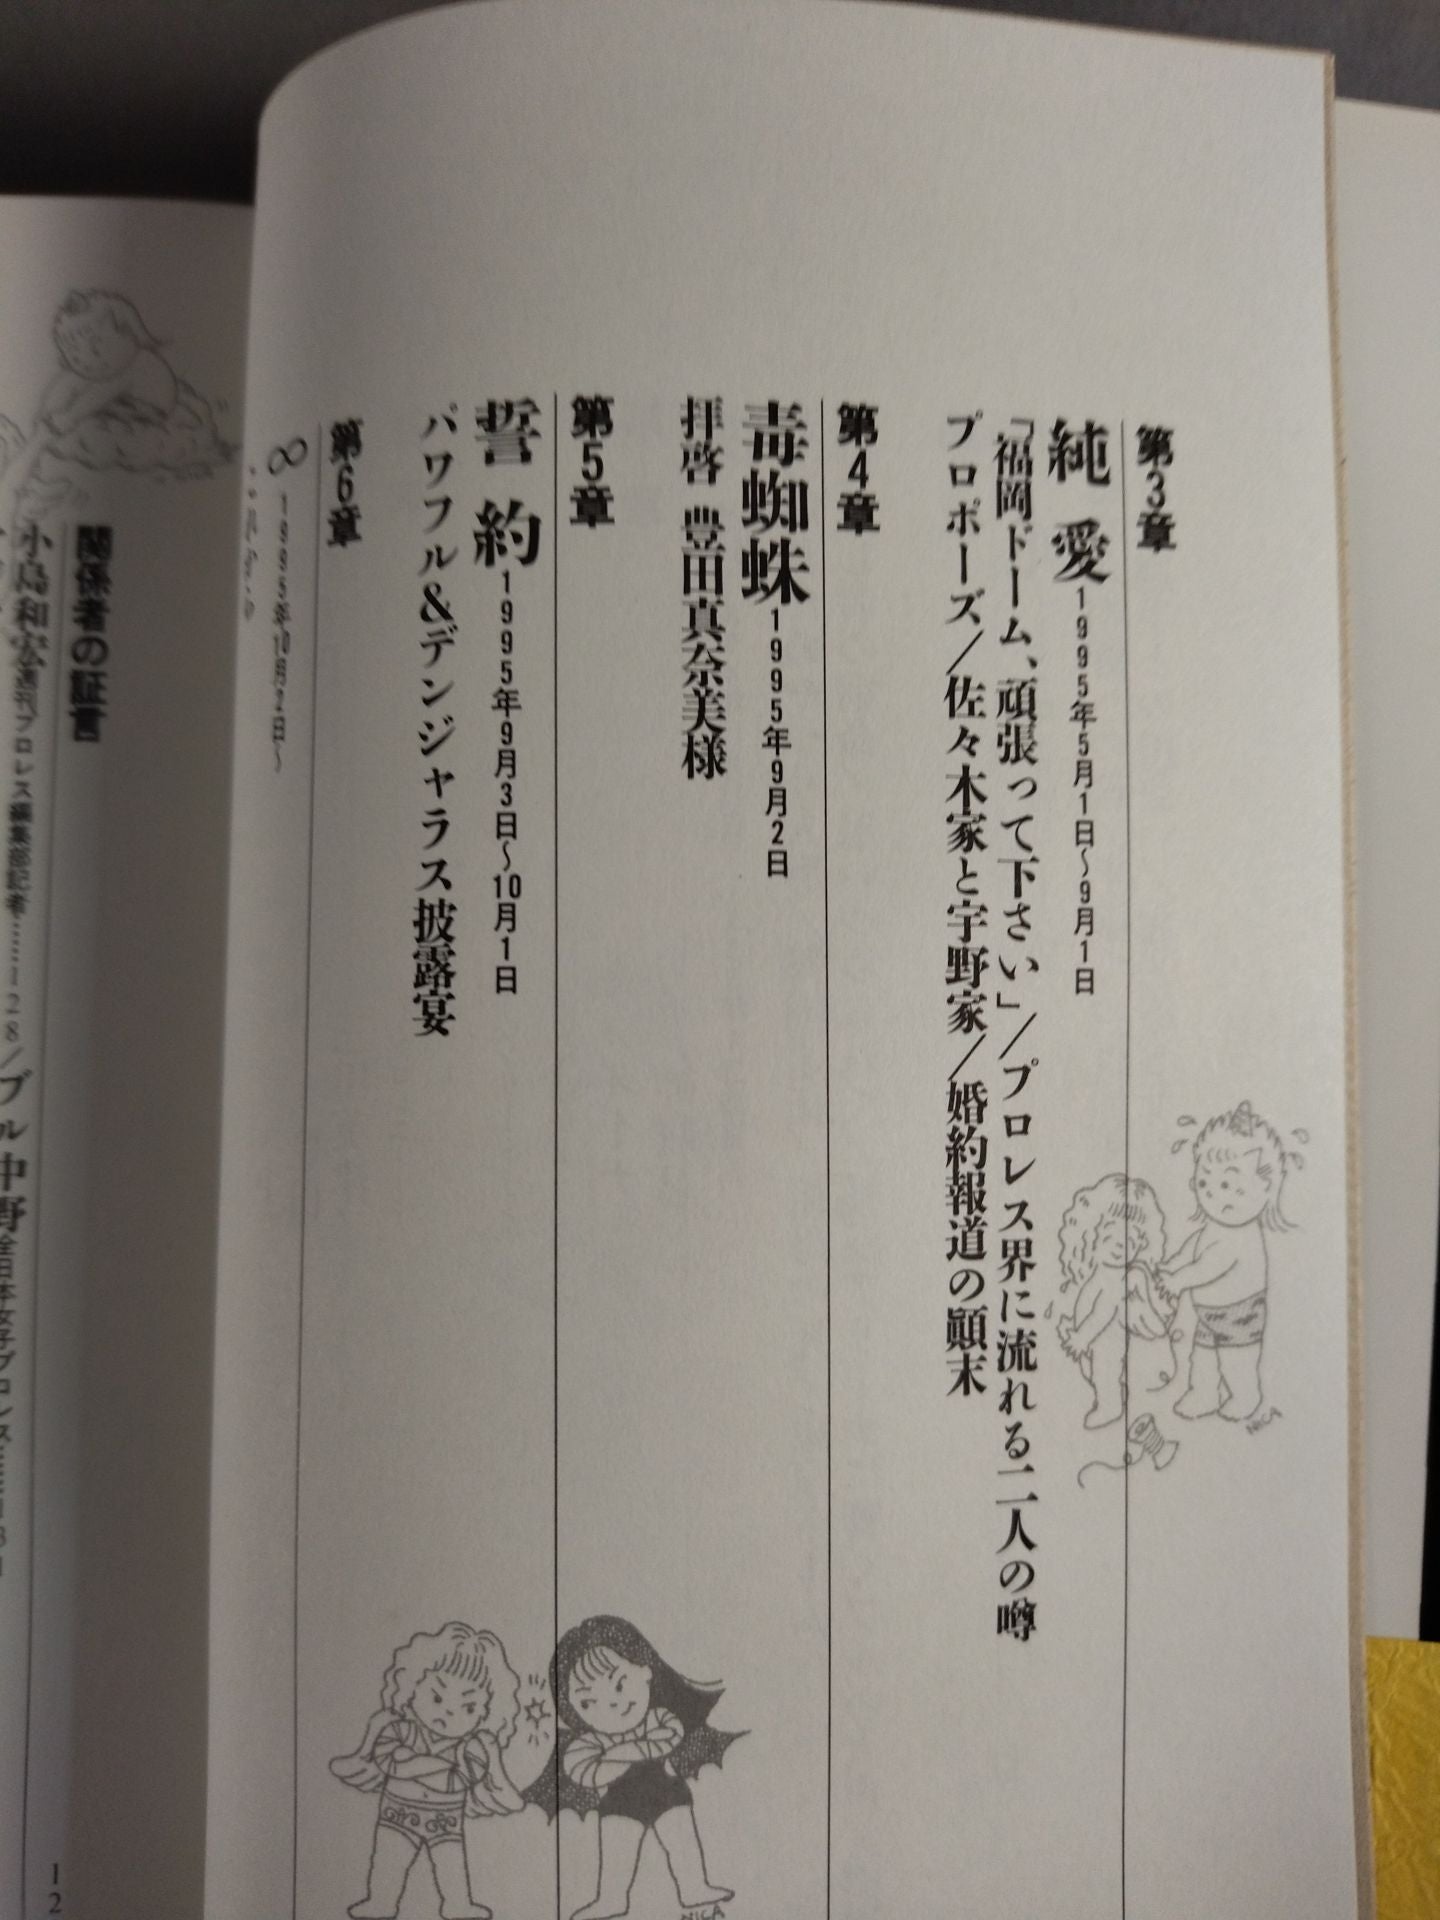 第3章
純愛 1995年5月1日～9月1日
「福岡ドーム、頑張って下さい」／プロレス界に流れる二人の噂
プロポーズ／佐々木家と宇野家／婚約報道の顛末
NICA
第4章
毒蜘蛛 1995年9月2日
拝啓 豊田真奈美様
第5章
誓約 1995年9月3日～10月1日
パワフル＆デンジャラス披露宴
NICA
第6章
∞ 1995年10月2日～
関係者の証言
小島和宏 週刊プロレス編集部記者……128／ブル中野 全日本女子プロレス……131
12